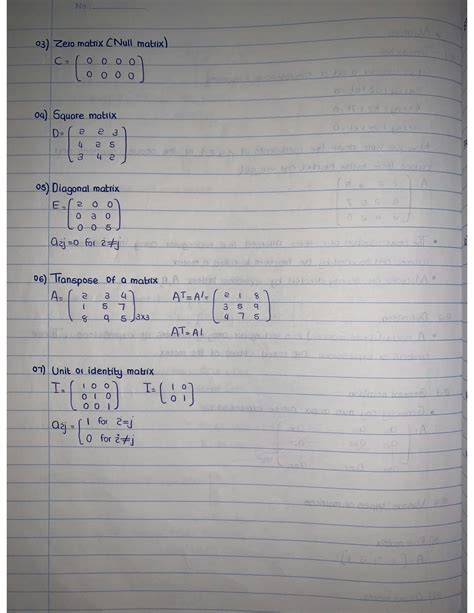 No
03) Zero matrix (Null matrix)
C = ( 0 0 0 0
0 0 0 0 )
04) Square matrix
D = ( 2 2 3
4 2 5
3 4 2 )
05) Diagonal matrix
E = ( 2 0 0
0 3 0
0 0 5 )
aij = 0 for i≠j
06) Transpose of a matrix
A = ( 2 3 4   AT = A' = ( 2 1 8
1 5 7   3 5 9
8 9 5 )3x3   4 7 5 )
AT = A'
07) Unit or identity matrix
I = ( 1 0 0   I = ( 1 0
0 1 0   0 1 )
0 0 1 )
aij = ( 1 for i=j
0 for i≠j